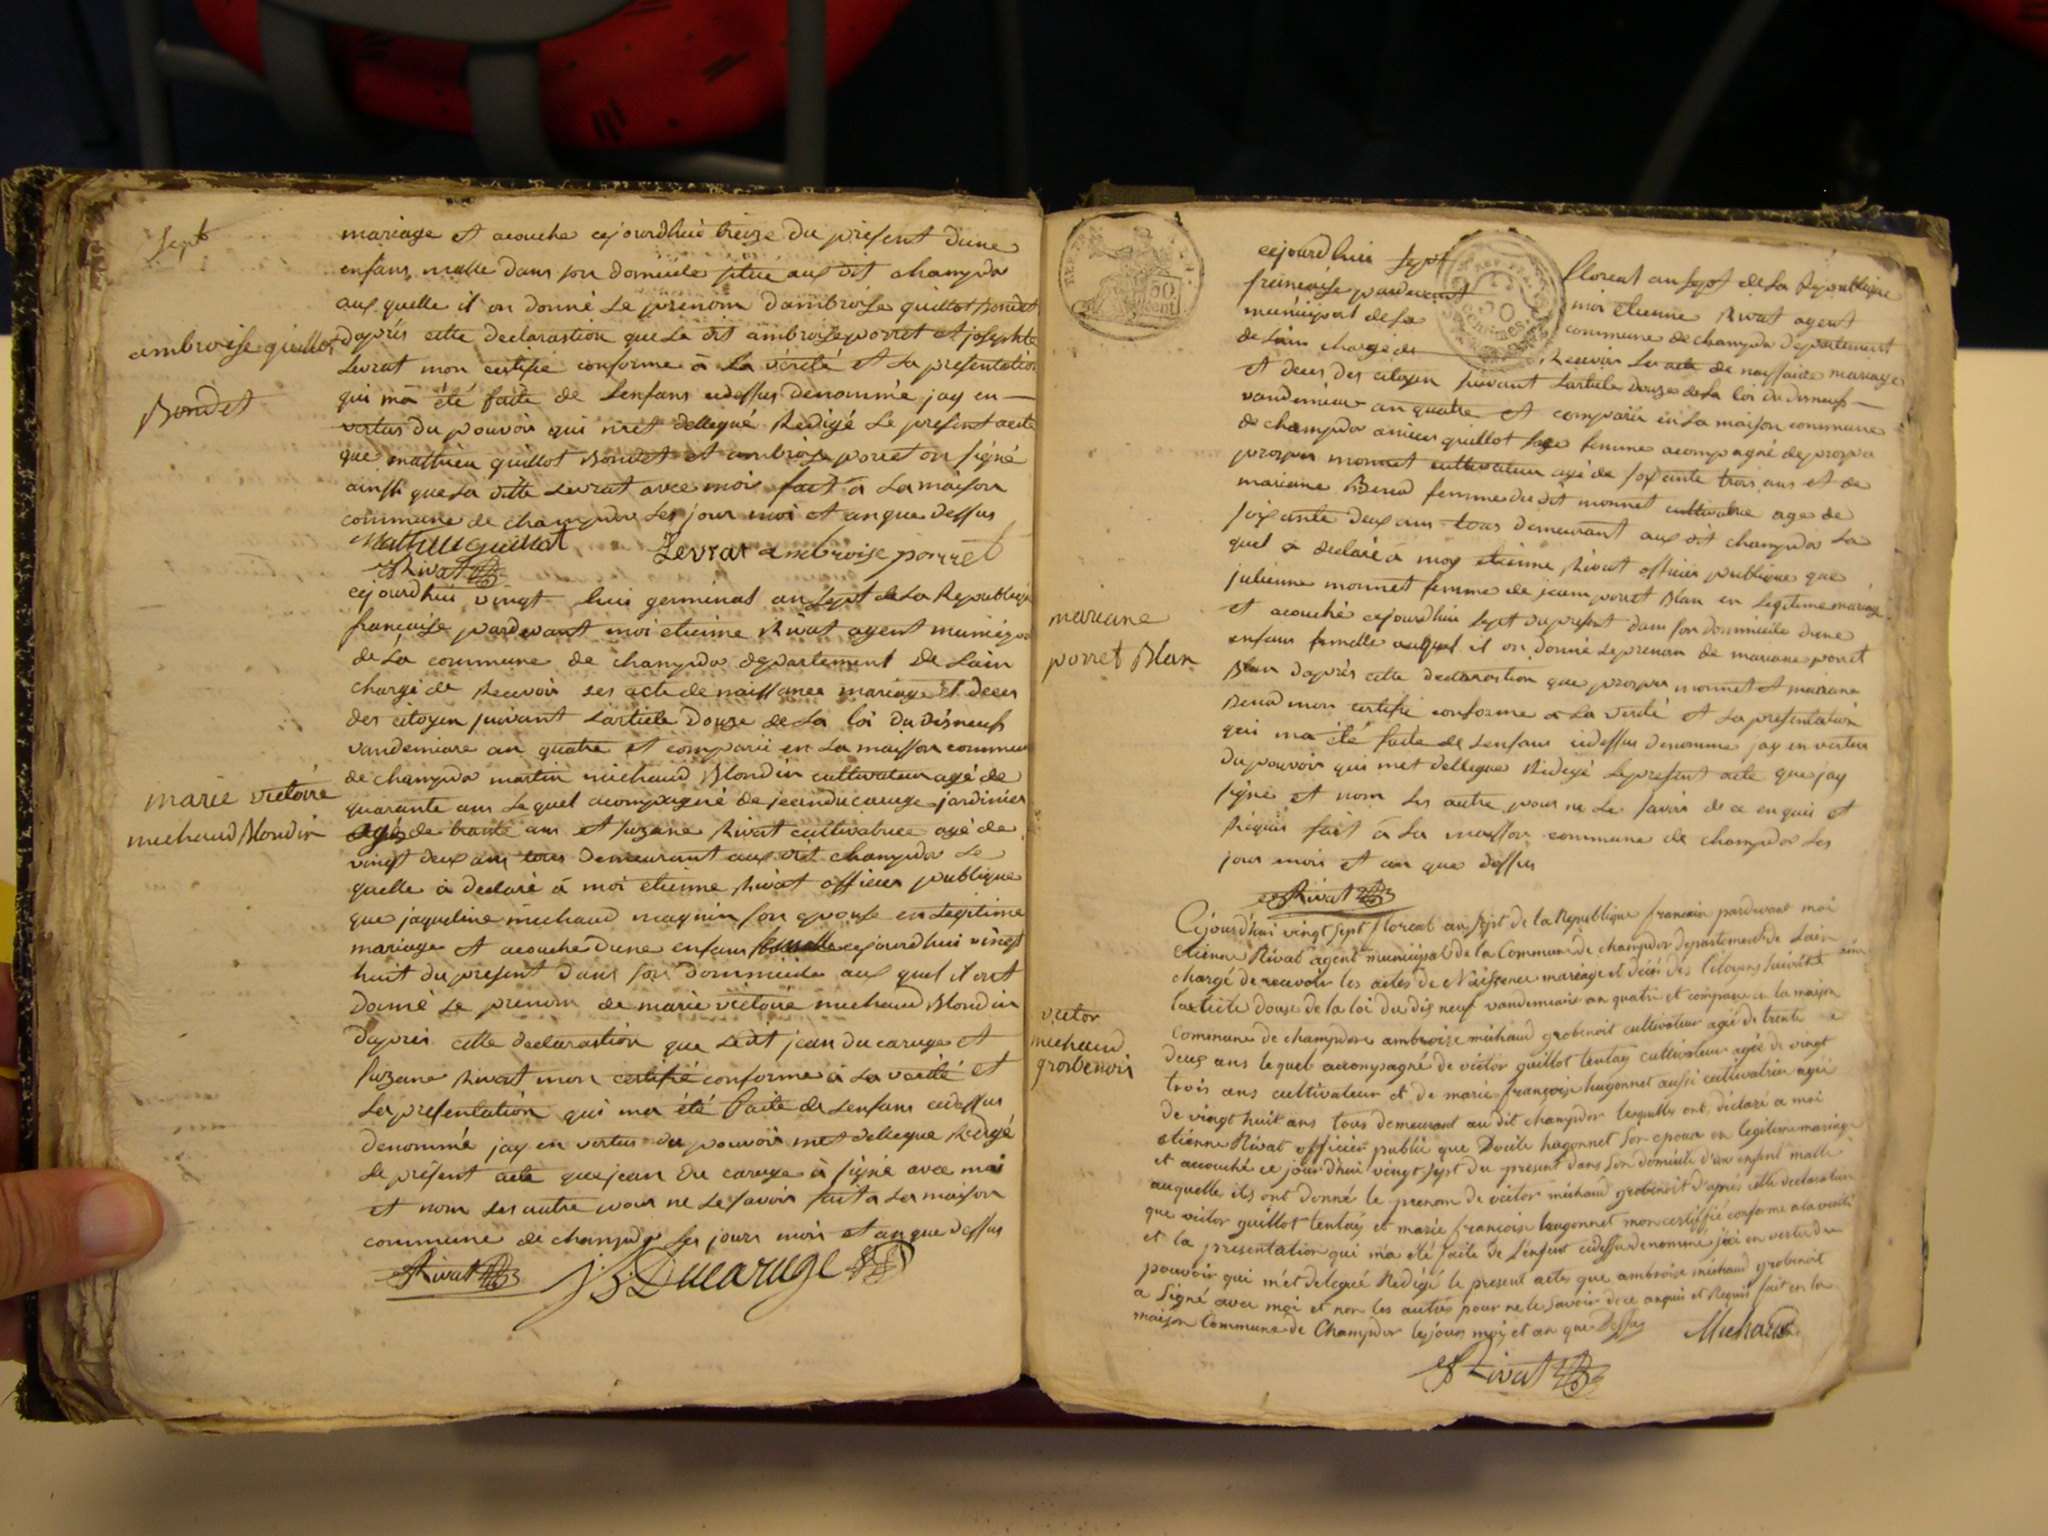 Sept
mariage et acouche cejourdhui treize du present dune
enfans malle dans son domicile situé aux dit champdor
aux quelle il on donné Le prenom dambroise guillot Bondet
ambroise guillot
Bondet
daprés cette declarastion que La dit ambroise porret et josephte
Levrat mon certifié conforme à La vérité et La presentation
qui mà été faite de Lenfans cidessus dénommé jay en
vertus du pouvoir qui met dellegué Redigé Le present acte
que mathieu guillot Bondet et ambroise porret on signé
ainsi que La ditte Levrat avec moi fait à La maison
commune de champdor Les jour moi et an que dessus
Mathieu guillot Levrat ambroise porret
E Rivat
cejourdhui vingt huit germinal an sept de La Republique
francaise pardevant moi etienne Rivat agent municipal
de Là commune de champdor departement de Lain
chargé de Recevoir les acte de naissance mariage et deces
des citoyen suivant Larticle douze de La loi du disneuf
vandemiare an quatre et comparu en La maisson commune
marie victoire
michaud Blondin
de champdor martin michaud Blondin cultivateur agé de
quarante ans Le quel acompagné de jean ducaruge jardinier
agé de trante ans et suzane Rivat cultivatrice agé de
vingt deux ans tous demeurant aux dit champdor Le
quelle à declaré à moi etienne Rivat officier publique
que jaqueline michaud magnin son epouse en Legitime
mariage et acouché dune enfans femelle cejourdhui vingt
huit du present dans son dommicile aux quel il ont
donné Le prenom de marie victoire michaud Blondin
daprés cette declarastion que Ledit jean du caruge et
suzane Rivat mon certifié conforme à La vérité et
La presentation qui ma été faite de Lenfans cidessus
denommé jay en vertus du pouvoir met dellegue Redigé
Le présent acte que jean du caruge à signé avec moi
et nom Les autre pour ne Le savoir fait a La maison
commune de champdor Les jours mois et an que dessus
E Rivat J B Ducaruge
cejourdhui sept floreal an sept de La Republique
freincaise pardevant moi etienne Rivat agent
municipal de La commune de champdor departement
de Lain chargé de Recevoir Les acte de naissance mariage
et deces des citoyen suivant Larticle douze de La loi du disneuf
vandemiare an quatre et comparu en La maison commune
de champdor guillot sage femme acompagné de prosper
prosper monnet cultivateur agé de soixante trois ans et de
mariane Benod femme du dit monnet cultivatrice age de
soixante deux ans tous demeurant aux dit champdor La
quel à declaré à moy etienne Rivat officier publique que
julienne monnet femme de jean porret Blan en Legitime mariage
mariane
porret Blan
et acouché cejourdhui sept du present dans son dommicile dune
enfans femelle auquel il on donné Le prenom de mariane porret
Blan daprés cette declarastion que prosper monnet et mariane
Benod mon certifié conforme a La verité et La presentation
qui ma été faite de Lenfans cidessus denomme jay en vertus
du pouvoir qui met dellegue Redigé Le present acte que jay
signé et nom Les autre pour ne Le savoir de ce enquis et
Requis fait à La maisson commune de champdor Les
jour mois et an que dessus
E Rivat
Cejourd'hui vingt sept floreal an sept de la Republique francaise pardevant moi
Etienne Rivat agent municipal de la Commune de champdor departement de Lain
chargé de recevoir les actes de Naissance mariage et décès des Citoyens suivant
larticle douse de la loi du dis neuf vandemiaire an quatre et comparu en la maison
victor
michaud
grosbenoit
Commune de champdor ambroise michaud grobenoit cultivateur agé de trente
deux ans lequel accompagné de victor guillot tentay cultivateur agé de vingt
trois ans cultivateur et de marie françoise hugonnet aussi cultivatrice agée
de vingt huit ans tous demeurant au dit champdor lesquelles ont déclaré a moi
etienne Rivat officier public que hugonnet son epouse en legitime mariage
et accouché ce jourd'hui vingt sept du présent dans son domicile d'un enfant malle
auquelle ils ont donné le prenom de victor michaud grobenoit d'après cette declaration
que victor guillot tentay et marie françoise hugonnet mon certiffié conforme a la verité
et la presentation qui m'a été faite de l'enfant cidessus denommé jai en vertu du
pouvoir qui m'et delegué Redigé le present actes que ambroise michaud grobenoit
a signé avec moi et non les autres pour ne le savoir de ce enquis et Requis fait en la
maison Commune de Champdor les jour moi et an que dessus
Michaud
E Rivat